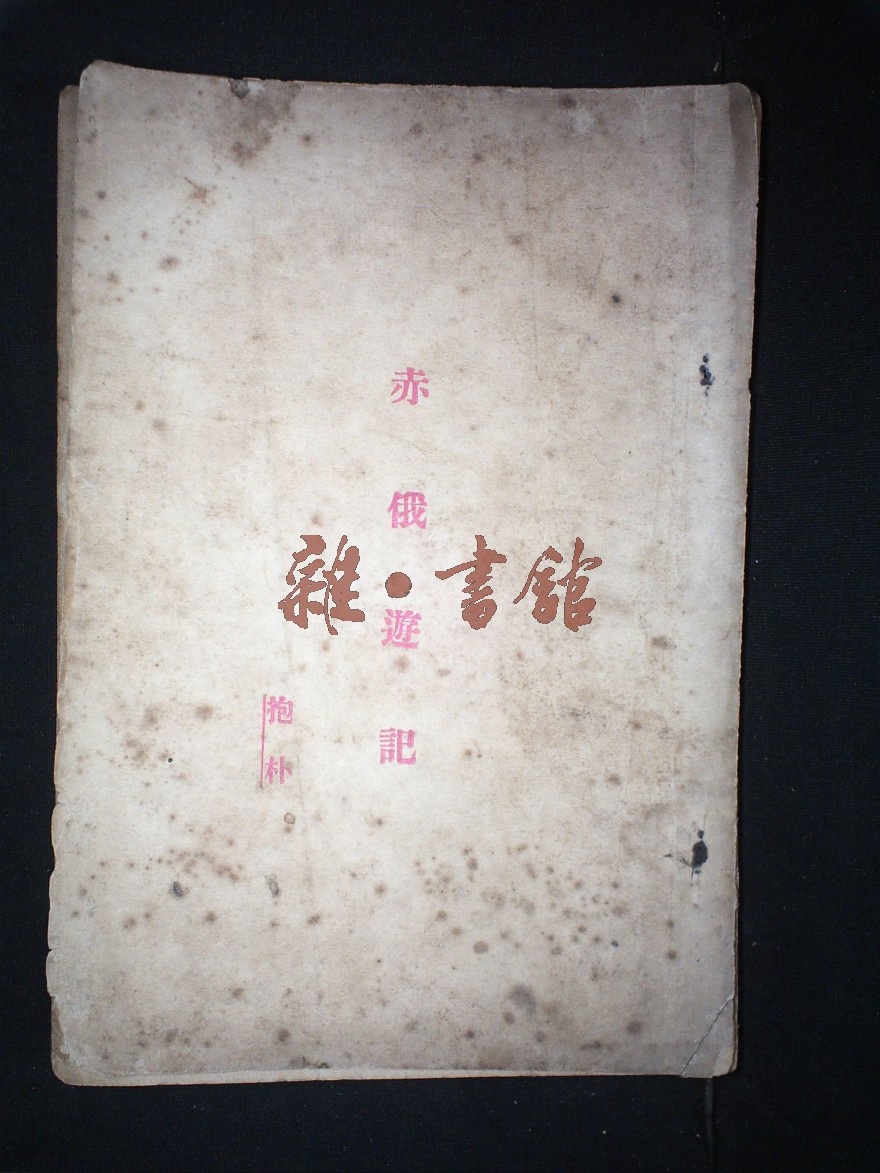 赤俄遊記
抱朴
雜·書館